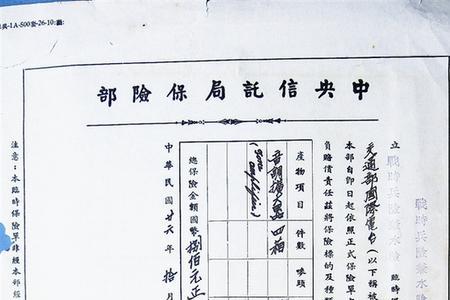 英-1A-500套-26-10:
中央信託局保險部
戰時兵險兼水險
立戰時兵險兼水險臨時
元通部國際電台(以下稱被
本部自即日起依照正式保險單
負賠償責任茲將保險標的及種
產物項目 件數 嘜頭
音頻擴大器 四箱
總保險金額國幣捌佰元正
中華民國廿六年拾月
注意:本臨時保險單非經本部經